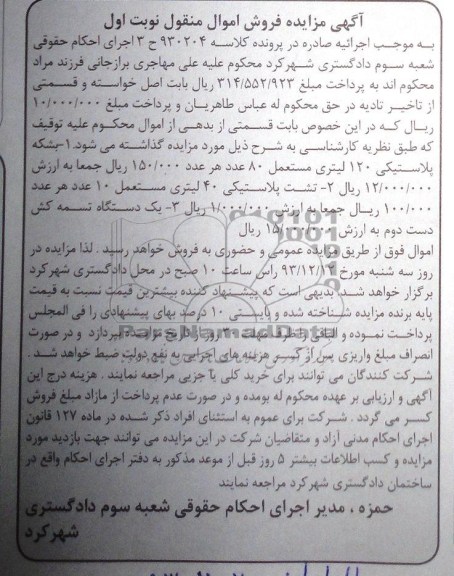 آگهی مزایده فروش اموال منقول نوبت اول
به موجب اجرائیه صادره در پرونده کلاسه ۹۳۰۲۰۴ ح ۳ اجرای احکام حقوقی
شعبه سوم دادگستری شهرکرد محکوم علیه علی مهاجری برازجانی فرزند مراد
محکوم اند به پرداخت مبلغ ۳۱۴/۵۵۲/۹۲۳ ریال بابت اصل خواسته و قسمتی
از تاخیر تادیه در حق محکوم له عباس طاهریان و پرداخت مبلغ ۱۰/۰۰۰/۰۰۰
ریال که در این خصوص بابت قسمتی از بدهی از اموال محکوم علیه توقیف
که طبق نظریه کارشناسی به شرح ذیل مورد مزایده گذاشته می شود.۱-بشکه
پلاستیکی ۱۲۰ لیتری مستعمل ۸۰ عدد هر عدد ۱۵۰/۰۰۰ ریال جمعا به ارزش
۱۲/۰۰۰/۰۰۰ ریال ۲- تشت پلاستیکی ۴۰ لیتری مستعمل ۱۰ عدد هر عدد
۱۰۰/۰۰۰ ریال جمعا به ارزش ۱/۰۰۰/۰۰۰ ریال ۳- یک دستگاه تسمه کش
دست دوم به ارزش ریال
اموال فوق از طریق مزایده عمومی و حضوری به فروش خواهد رسید . لذا مزایده در
روز سه شنبه مورخ راس ساعت ۱۰ صبح در محل دادگستری شهرکرد
برگزار خواهد شد. بدیهی است که پیشنهاد کننده بیشترین قیمت نسبت به قیمت
پایه برنده مزایده شناخته شده و بایستی ۱۰ درصد بهای پیشنهادی را فی المجلس
پرداخت نموده و الباقی را ظرف مهلت از تاریخ مزایده بپردازد و در صورت
انصراف مبلغ واریزی پس از کسر هزینه های اجرایی به نفع دولت ضبط خواهد شد .
شرکت کنندگان می توانند برای خرید کلی یا جزیی مراجعه نمایند . هزینه درج این
آگهی و ارزیابی بر عهده محکوم له بومده و در صورت عدم پرداخت از مازاد مبلغ فروش
کسر می گردد . شرکت برای عموم به استثنای افراد ذکر شده در ماده ۱۲۷ قانون
اجرای احکام مدنی آزاد و متقاضیان شرکت در این مزایده می توانند جهت بازدید مورد
مزایده و کسب اطلاعات بیشتر ۵ روز قبل از موعد مذکور به دفتر اجرای احکام واقع در
ساختمان دادگستری شهرکرد مراجعه نمایند
حمزه ، مدیر اجرای احکام حقوقی شعبه سوم دادگستری
شهرکرد